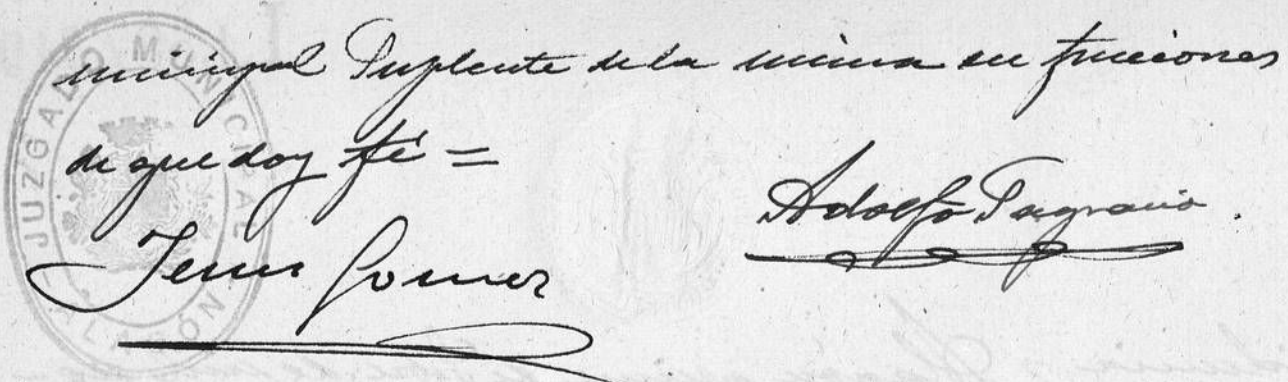 municipal Suplente de la misma en funciones
de que doy fé =
Jesus Gomez
Adolfo
JUZGADO MUNICIPAL